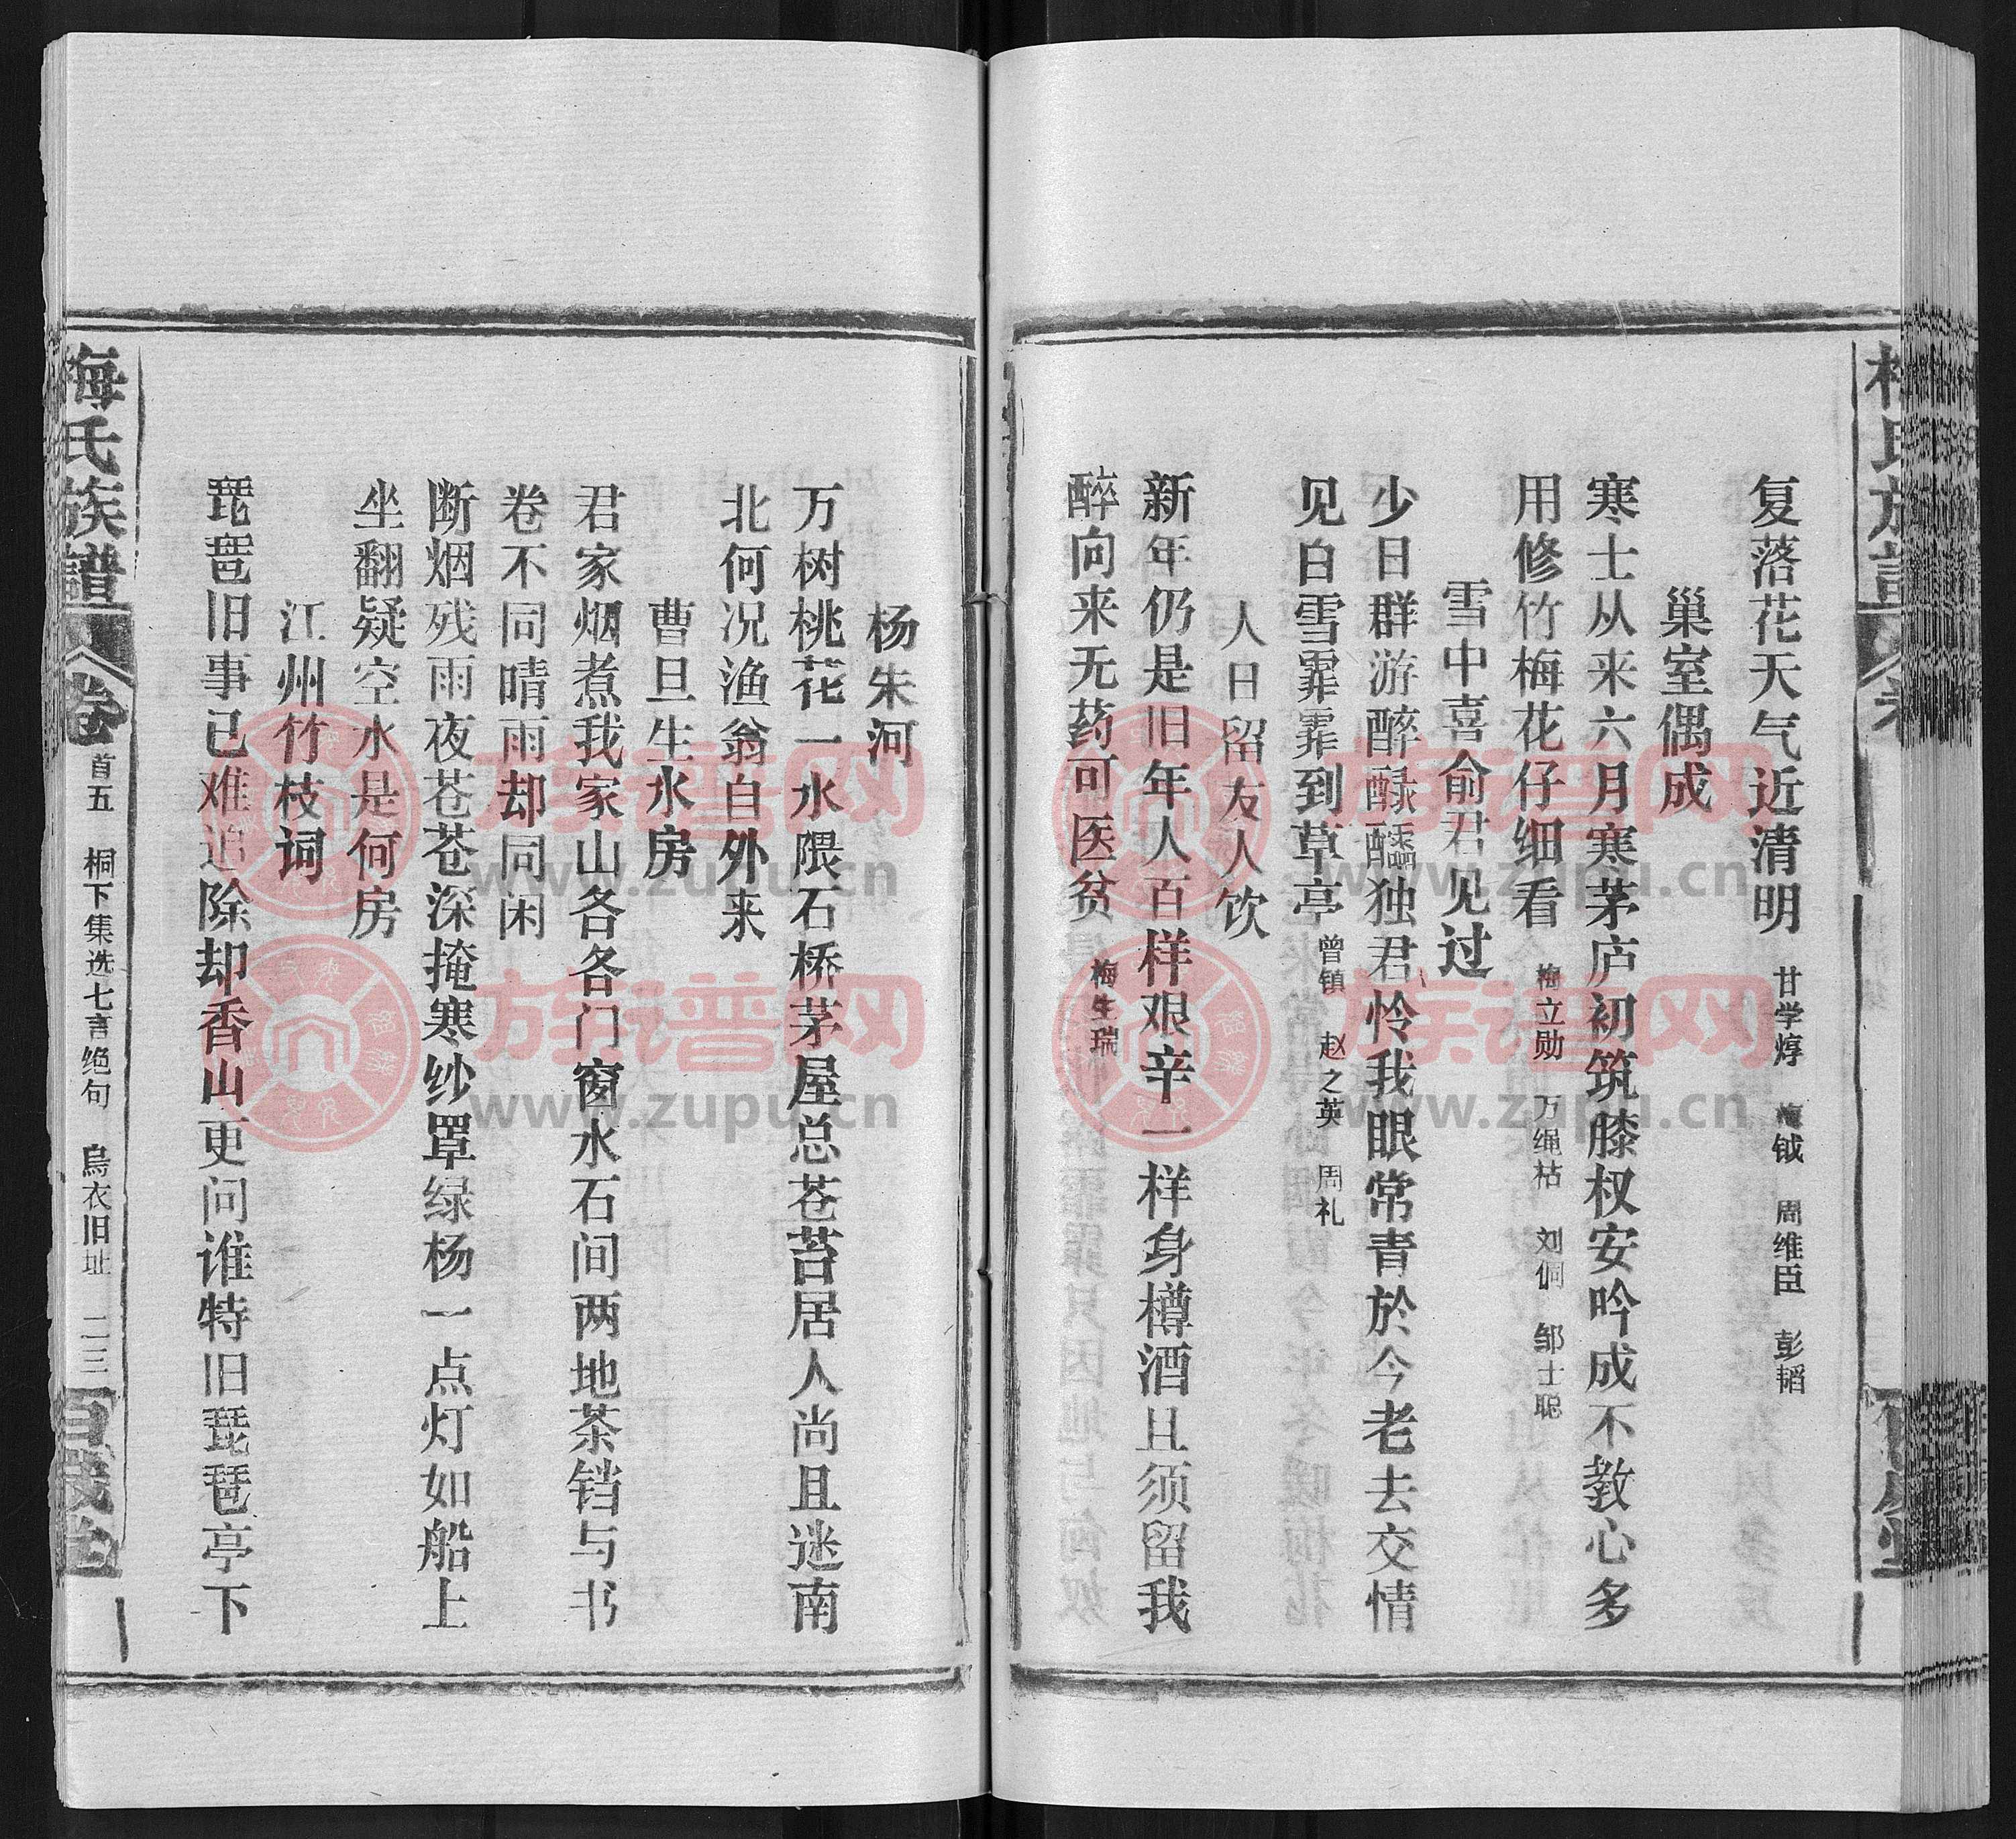 复落花天气近清明 甘学焞 梅钺 周维臣 彭韬
巢室偶成
寒士从来六月寒茅庐初筑膝权安吟成不教心多
用修竹梅花仔细看 梅立勋 万绳枯 刘侗 邹士聪
雪中喜俞君见过
少日群游醉醁醽独君怜我眼常青於今老去交情
见白雪霏霏到草亭 曾镇 赵之英 周礼
人日留友人饮
新年仍是旧年人百样艰辛一样身樽酒且须留我
醉向来无药可医贫 梅生瑞
杨朱河
万树桃花一水隈石桥茅屋总苍苔居人尚且迷南
北何况渔翁自外来
曹旦生水房
君家烟煮我家山各各门窗水石间两地茶铛与书
卷不同晴雨却同闲
断烟残雨夜苍苍深掩寒纱罩绿杨一点灯如船上
坐翻疑空水是何房
江州竹枝词
琵琶旧事已难追除却香山更问谁特旧琵琶亭下
梅氏族譜 卷 首五 桐下集选七言绝句 烏衣旧址 二三 百歲堂
族谱网
www.zupu.cn
族谱网
www.zupu.cn
族谱网
www.zupu.cn
族谱网
www.zupu.cn